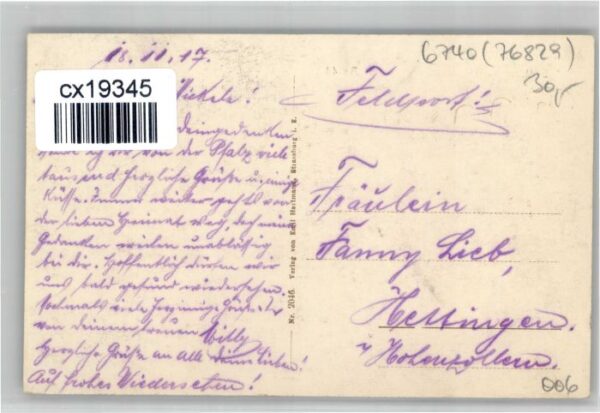 18.11.17.
6740 (76829)
30,-
cx19345
Feldpost!
deingedenken
von der Pfalz viele
tausend herzliche Grüße u. innige
Küsse. Immer weiter geht's von
der lieben Heimat weg, doch meine
Gedanken weilen unablässig
bei dir. Hoffentlich dürfen wir
uns bald gesund wiedersehen.
Nochmals viele herzinnige
von deinem treuen Willy
Herzliche Grüße an alle Lieben!
Auf frohes Wiedersehen!
Nr. 2046. Verlag von Hartmann, Strassburg i. E.
Fräulein
Fanny Lieb,
Hettingen.
Hohenzollern.
006